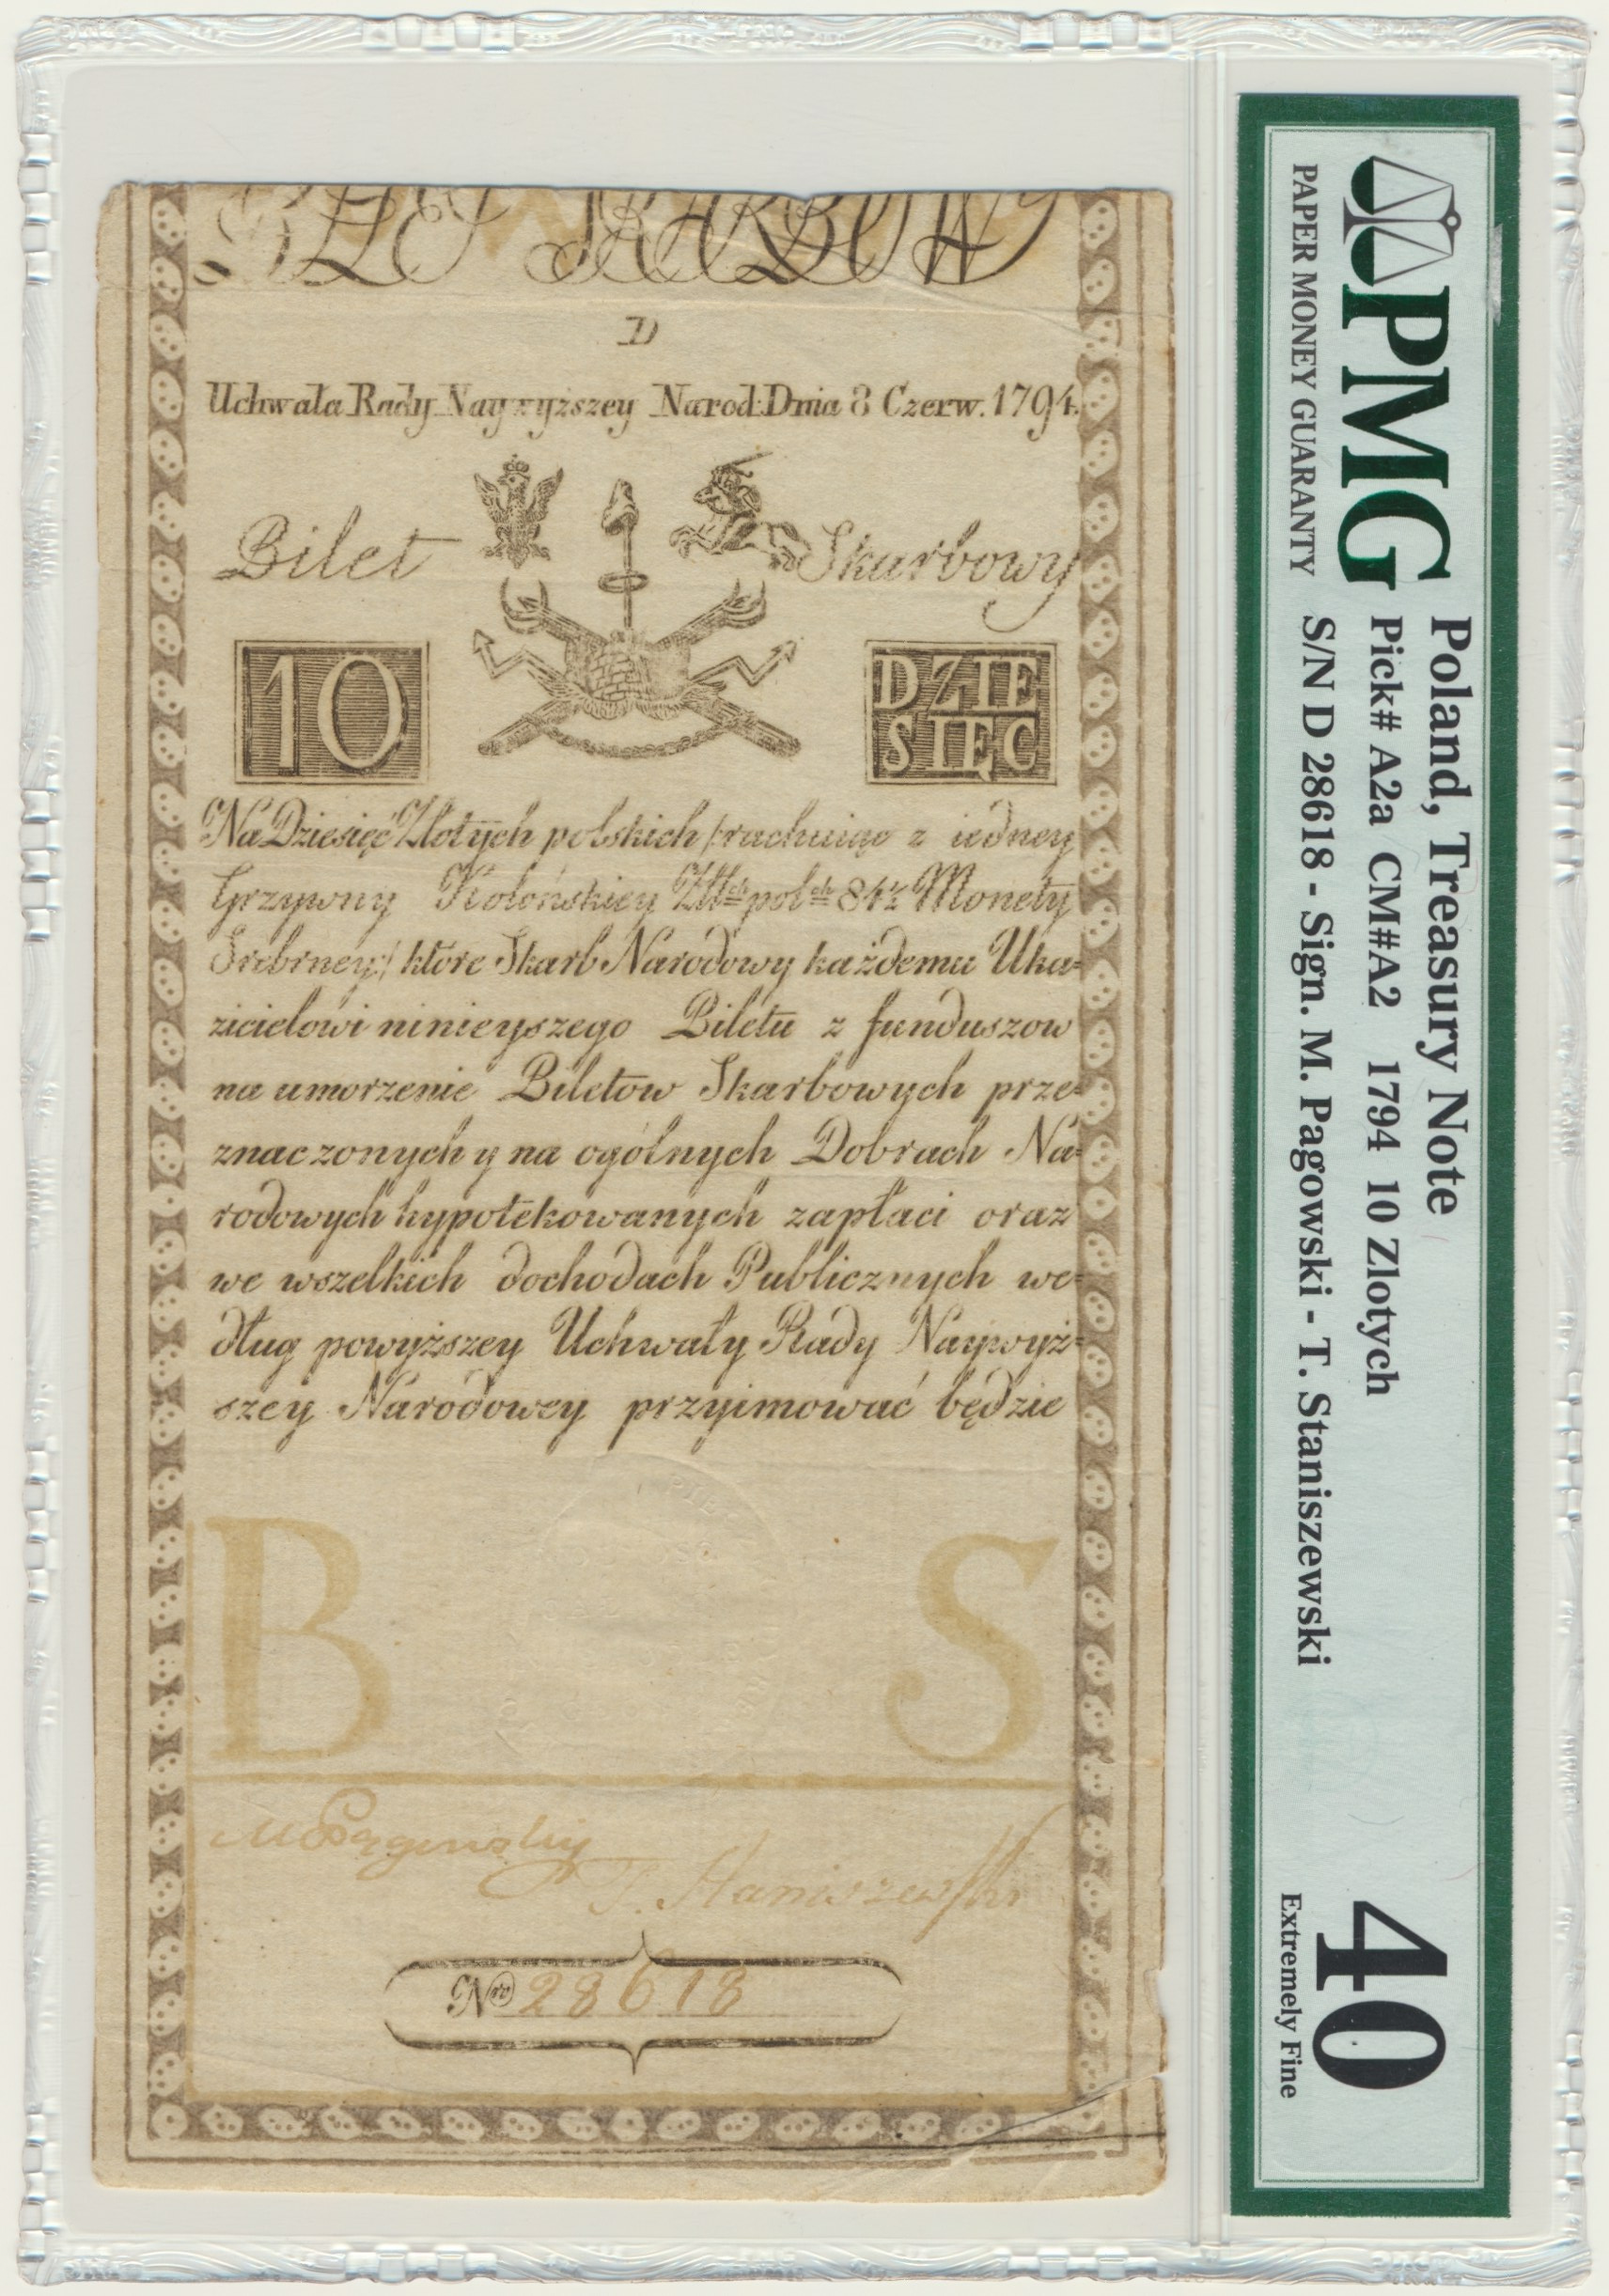 BILET SKARBOWY
D
Uchwała Rady Naywyższey Narod: Dnia 8 Czerw. 1794.
Bilet Skarbowy
10
DZIE
SIĘC
Na Dziesięć Złotych polskich /rachuiąc z iedney
Grzywny Kolońskiey Złł:ch pol:ch 84½ Monety
Srebrney:/ które Skarb Narodowy każdemu Uka=
zicielowi ninieyszego Biletu z funduszow
na umorzenie Biletow Skarbowych prze=
znaczonych y na ogólnych Dobrach Na=
rodowych hypotekowanych zapłaci oraz
we wszelkich dochodach Publicznych we=
dług powyższey Uchwały Rady Naywyż=
szey Narodowey przyimować będzie
B S
T. Staniszewski
Nro 28618
PMG
PAPER MONEY GUARANTY
Poland, Treasury Note
Pick# A2a CM#A2 1794 10 Zlotych
S/N D 28618 - Sign. M. Pagowski - T. Staniszewski
40
Extremely Fine